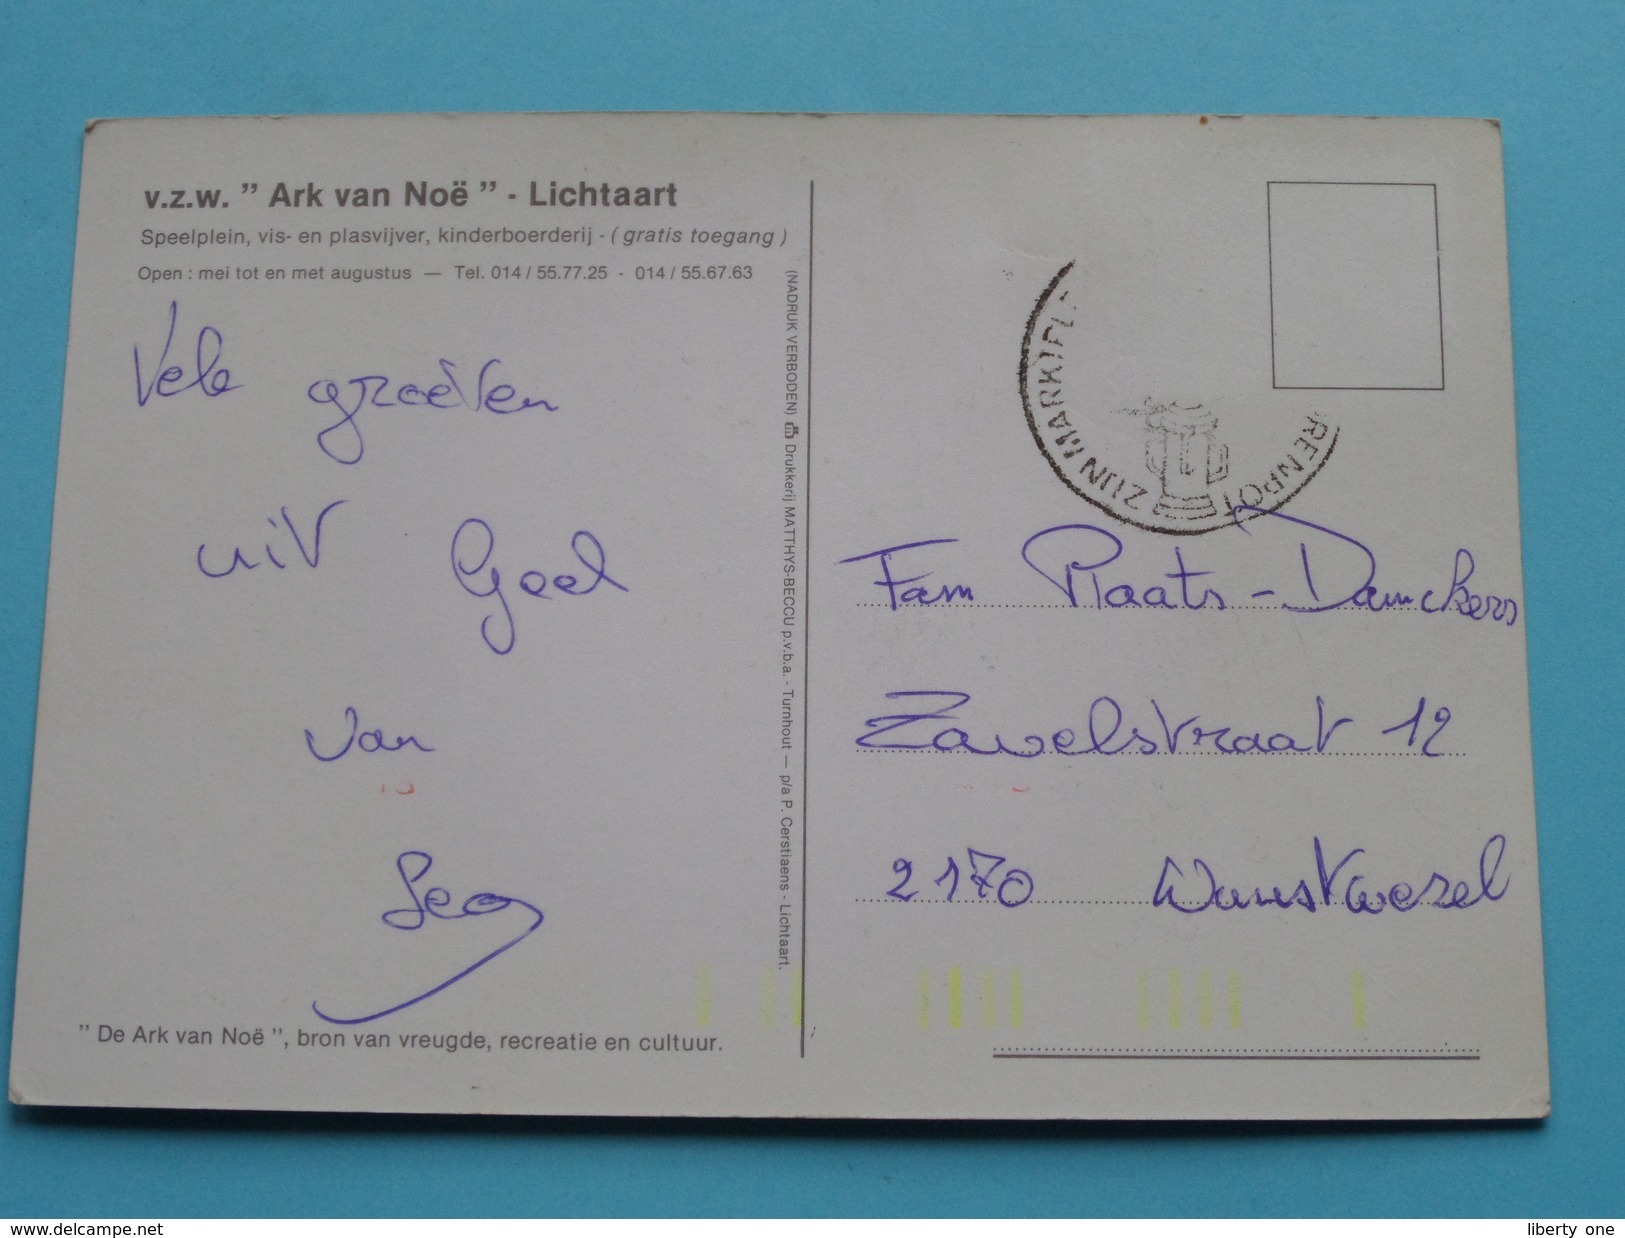 v.z.w. ” Ark van Noë ” - Lichtaart
Speelplein, vis- en plasvijver, kinderboerderij - ( gratis toegang )
Open : mei tot en met augustus — Tel. 014 / 55.77.25 - 014 / 55.67.63
Vele groeten
uit Geel
van
Leo
” De Ark van Noë ”, bron van vreugde, recreatie en cultuur.
(NADRUK VERBODEN) Drukkerij MATTHYS-BECCU p.v.b.a. - Turnhout — p/a P. Cerstiaens - Lichtaart.
ZIJN MARKTPL
RENPOT
Fam Plaats - Damckers
Zavelstraat 12
2170 Wuustwezel
www.delcampe.net
liberty one